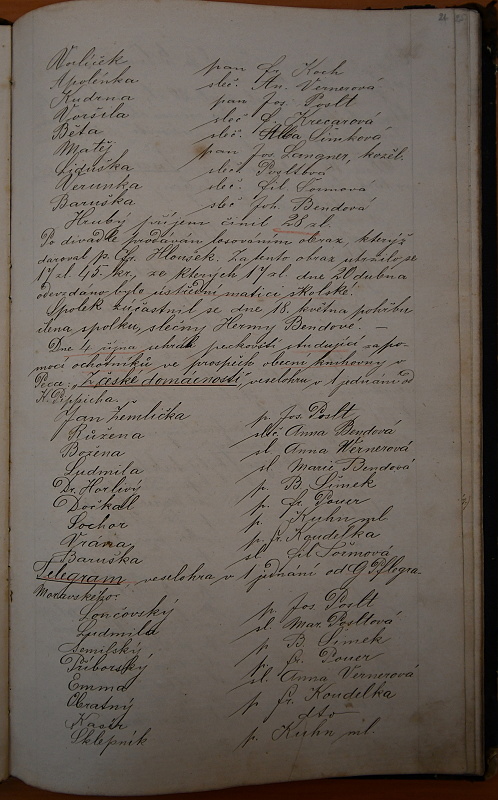 Vorlíček pan Fr. Koch
Apolenka sleč. An. Vernerová
Kudrna pan Jos. Poslt
Voršila sleč. Krecarová
Běta sleč. Šimková
Matěj pan Jos. Langner, kožel.
Liduška sleč. Poslltová
Verunka sleč. Lil. Šormová
Baruška sleč Joh. Bendová
Hrubý příjem činil 28 zl.
Po divadle prodáván losováním obraz, kterýž
daroval p. Fr. Hloušek. Za tento obraz utržilo se
17 zl. 45. kr., ze kterých 17 zl. dne 20 dubna
odevzdáno bylo ústřední matici školské.
Spolek zúčastnil se dne 18. května pohřbu
člena spolku, slečny Hermy Bendove. —
Dne 4 října uhráli peckovští studující za po-
moci ochotníků ve prospěch obecní knihovny v
Pecce: Z české domácnosti, veselohru v 1 jednání od
K. Pippicha.
Jan Žemlička p. Jos. Poslt
Růžena sleč Anna Bendová
Božena sl. Anna Wernerová
Ludmila sl. Marie Bendová
Dr. Horlivý p. B. Šimek
Dočkal p. Fr. Pouer
Sochor p. Kuhn ml.
Vrána p. fr. Koudelka
Baruška sl. Lil Šormová
Telegram, veselohra v 1 jednání od G Pflegra-
Moravského:
Lončovský p. Jos Poslt
Ludmila sl. Mar. Posltová
Semilský p B. Šimek
Příborský p. fr. Pouer
Emma sl. Anna Vernerová
Obratný p fr. Koudelka
Kasír dto
Sklepník p. Kuhn ml.